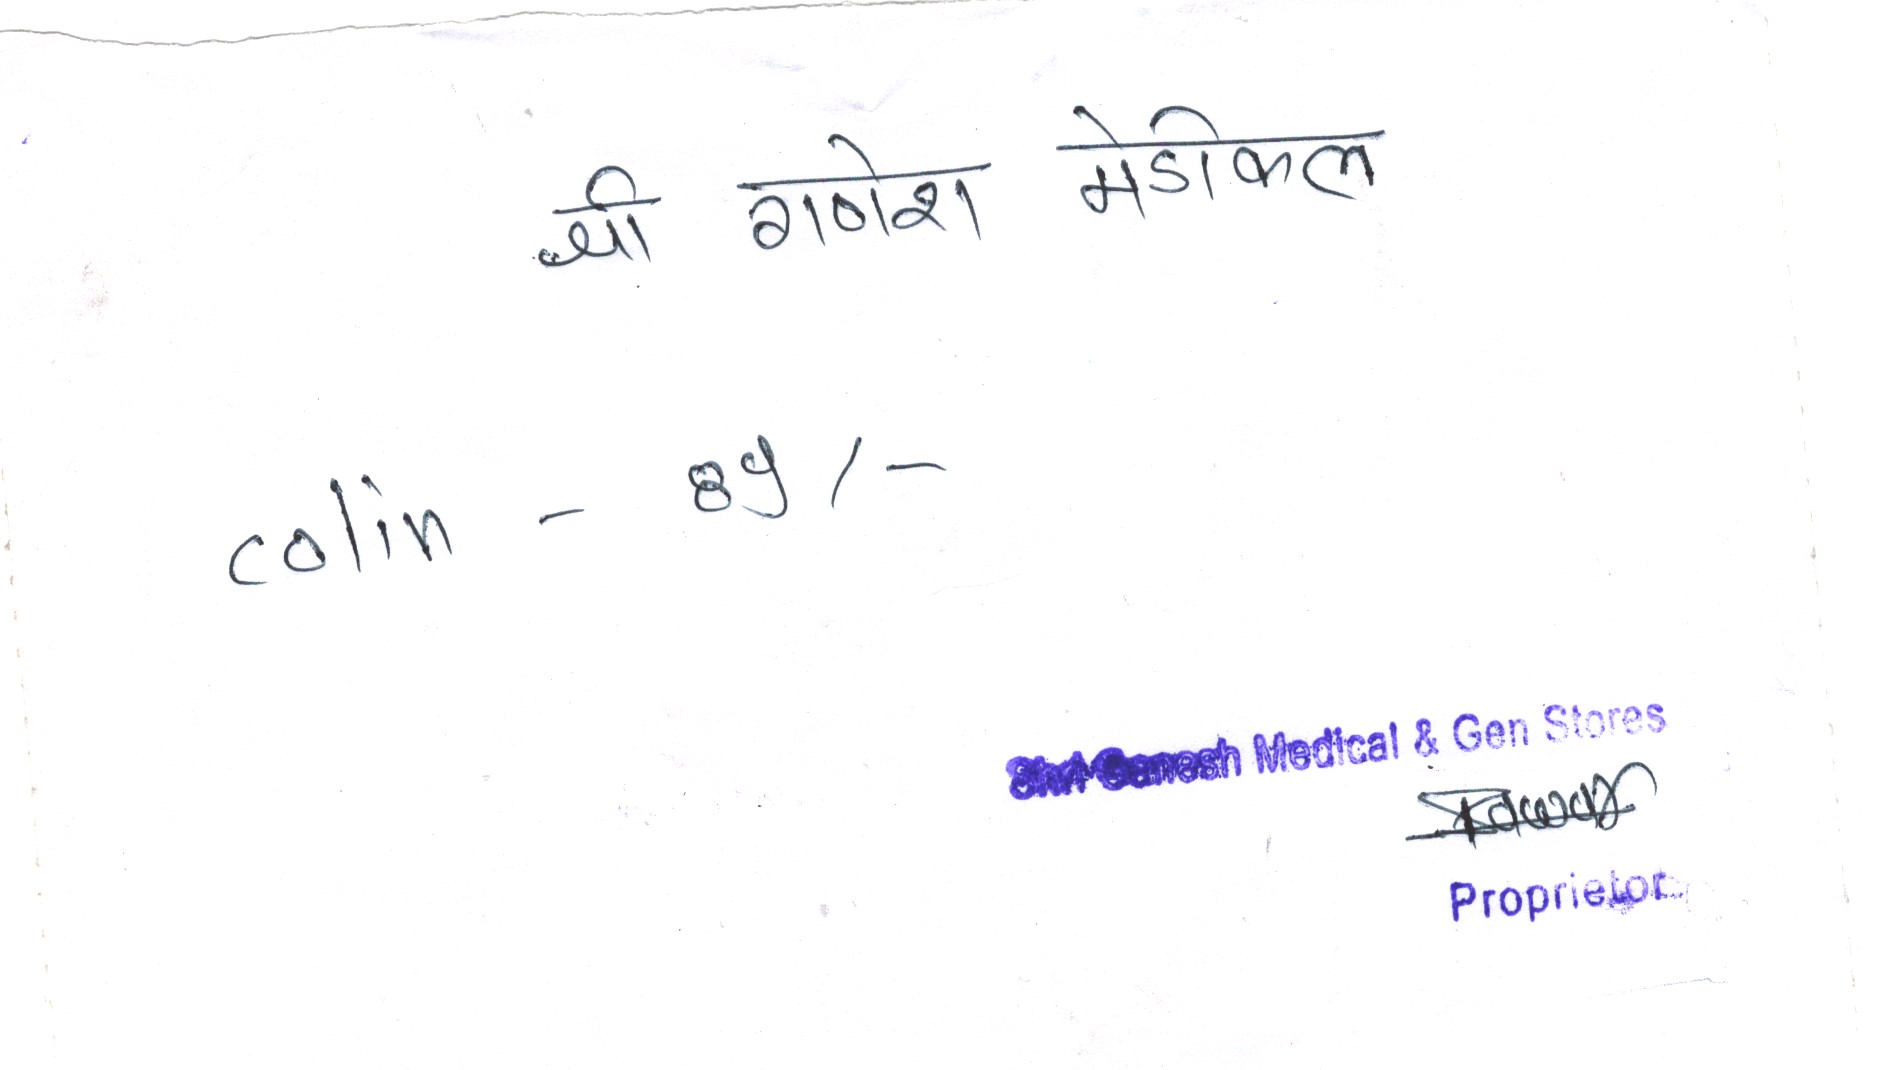 श्री गणेश मेडीकल
colin - 89 /-
Shri Ganesh Medical & Gen Stores
Proprietor